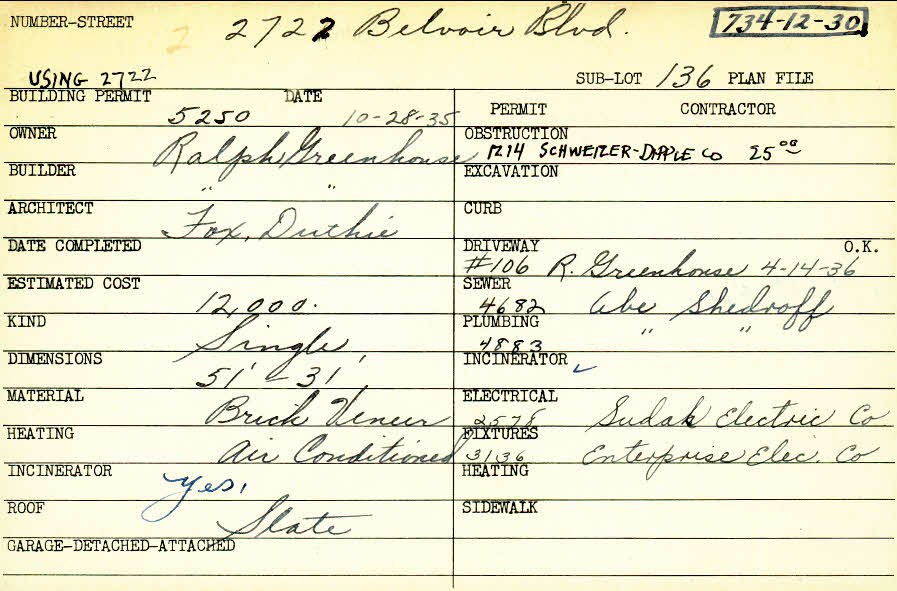 NUMBER-STREET 2722 Belvoir Blvd. 734-12-30
USING 2722 SUB-LOT 136 PLAN FILE
BUILDING PERMIT 5250 DATE 10-28-35
PERMIT CONTRACTOR
OWNER Ralph Greenhouse
OBSTRUCTION 1214 SCHWEIZER-DIPPLE CO 25 00
BUILDER " "
EXCAVATION
ARCHITECT Fox, Duthie
CURB
DATE COMPLETED
DRIVEWAY #106 R. Greenhouse 4-14-36 O.K.
ESTIMATED COST 12,000.
SEWER 4682 Abe Shedroff
KIND Single
PLUMBING 4883 " "
DIMENSIONS 51' - 31'
INCINERATOR ✓
MATERIAL Brick Veneer
ELECTRICAL 2578 Sudak Electric Co
HEATING Air Conditioned
FIXTURES 3136 Enterprise Elec. Co
INCINERATOR yes,
HEATING
ROOF Slate
SIDEWALK
GARAGE-DETACHED-ATTACHED